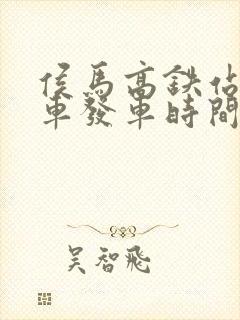 侯馬高鉄佔
車發車時間
吴智飛